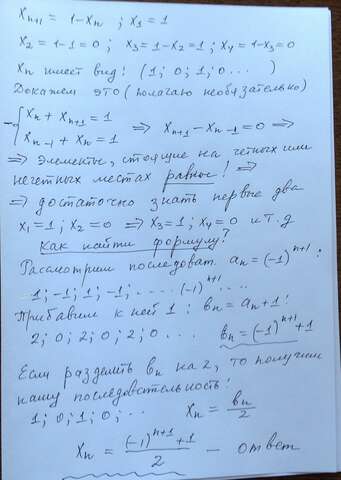 Xn+1 = 1-Xn ; X1 = 1
X2 = 1-1 = 0 ; X3 = 1-X2 = 1 ; X4 = 1-X3 = 0
Xn имеет вид: (1; 0; 1; 0 ... )
Докажем это (полагаю необязательно)
-{ Xn + Xn+1 = 1
Xn-1 + Xn = 1 ⇒ Xn+1 - Xn-1 = 0 ⇒
⇒ элементы, стоящие на четных или
нечетных местах равны! ⇒
⇒ достаточно знать первые два
X1 = 1 ; X2 = 0 ⇒ X3 = 1 ; X4 = 0 и т.д
Как найти формулу?
Рассмотрим последоват. an = (-1)^n+1 :
1; -1; 1; -1; .... (-1)^n+1 ....
Прибавим к ней 1 : bn = an + 1 :
2; 0; 2; 0; 2; 0 ... bn = (-1)^n+1 + 1
Если разделить bn на 2, то получим
нашу последовательность:
1; 0; 1; 0; ... Xn = bn/2
Xn = ((-1)^n+1 + 1)/2 - ответ